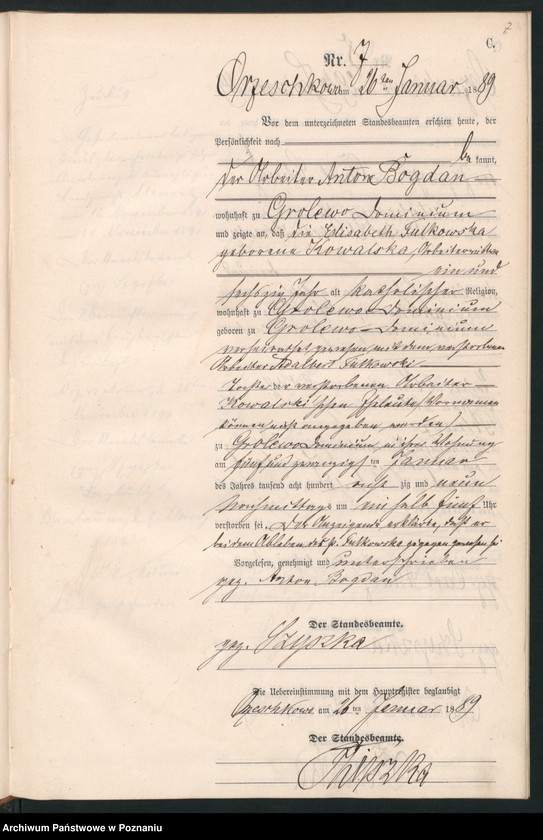 7
C.
Nr. 7
Orzeschkowo am 26 ten Januar 1889
Vor dem unterzeichneten Standesbeamten erschien heute, der
Persönlichkeit nach
be kannt,
der Arbeiter Anton Bogdan
wohnhaft zu Grolewo Dominium
und zeigte an, daß die Elisabeth Sulkowska
geborene Kowalska, Arbeiterwittwe
ein und
sechszig Jahr alt katholischer Religion,
wohnhaft zu Grolewo Dominium
geboren zu Grolewo Dominium
verheirathet gewesen mit dem verstorbenen
Arbeiter Adalbert Sulkowski
Tochter der verstorbenen Arbeiter
Kowalski'schen Eheleute (Vornamen
können nicht angegeben werden)
zu Grolewo Dominium in ihrer Wohnung
am fünf und zwanzigs ten Januar
des Jahres tausend acht hundert acht zig und neun
Nachmittags um ein halb fünf Uhr
verstorben sei. Der Anzeigende erklärte, daß er
bei dem Ableben der p. Sulkowska zugegen gewesen sei
Vorgelesen, genehmigt und unterschrieben
gez. Anton Bogdan
Der Standesbeamte.
gez. Szyszka
Die Uebereinstimmung mit dem Hauptregister beglaubigt
Orzeschkowo am 26 ten Januar 1889
Der Standesbeamte.
Szyszka
Archiwum Państwowe w Poznaniu